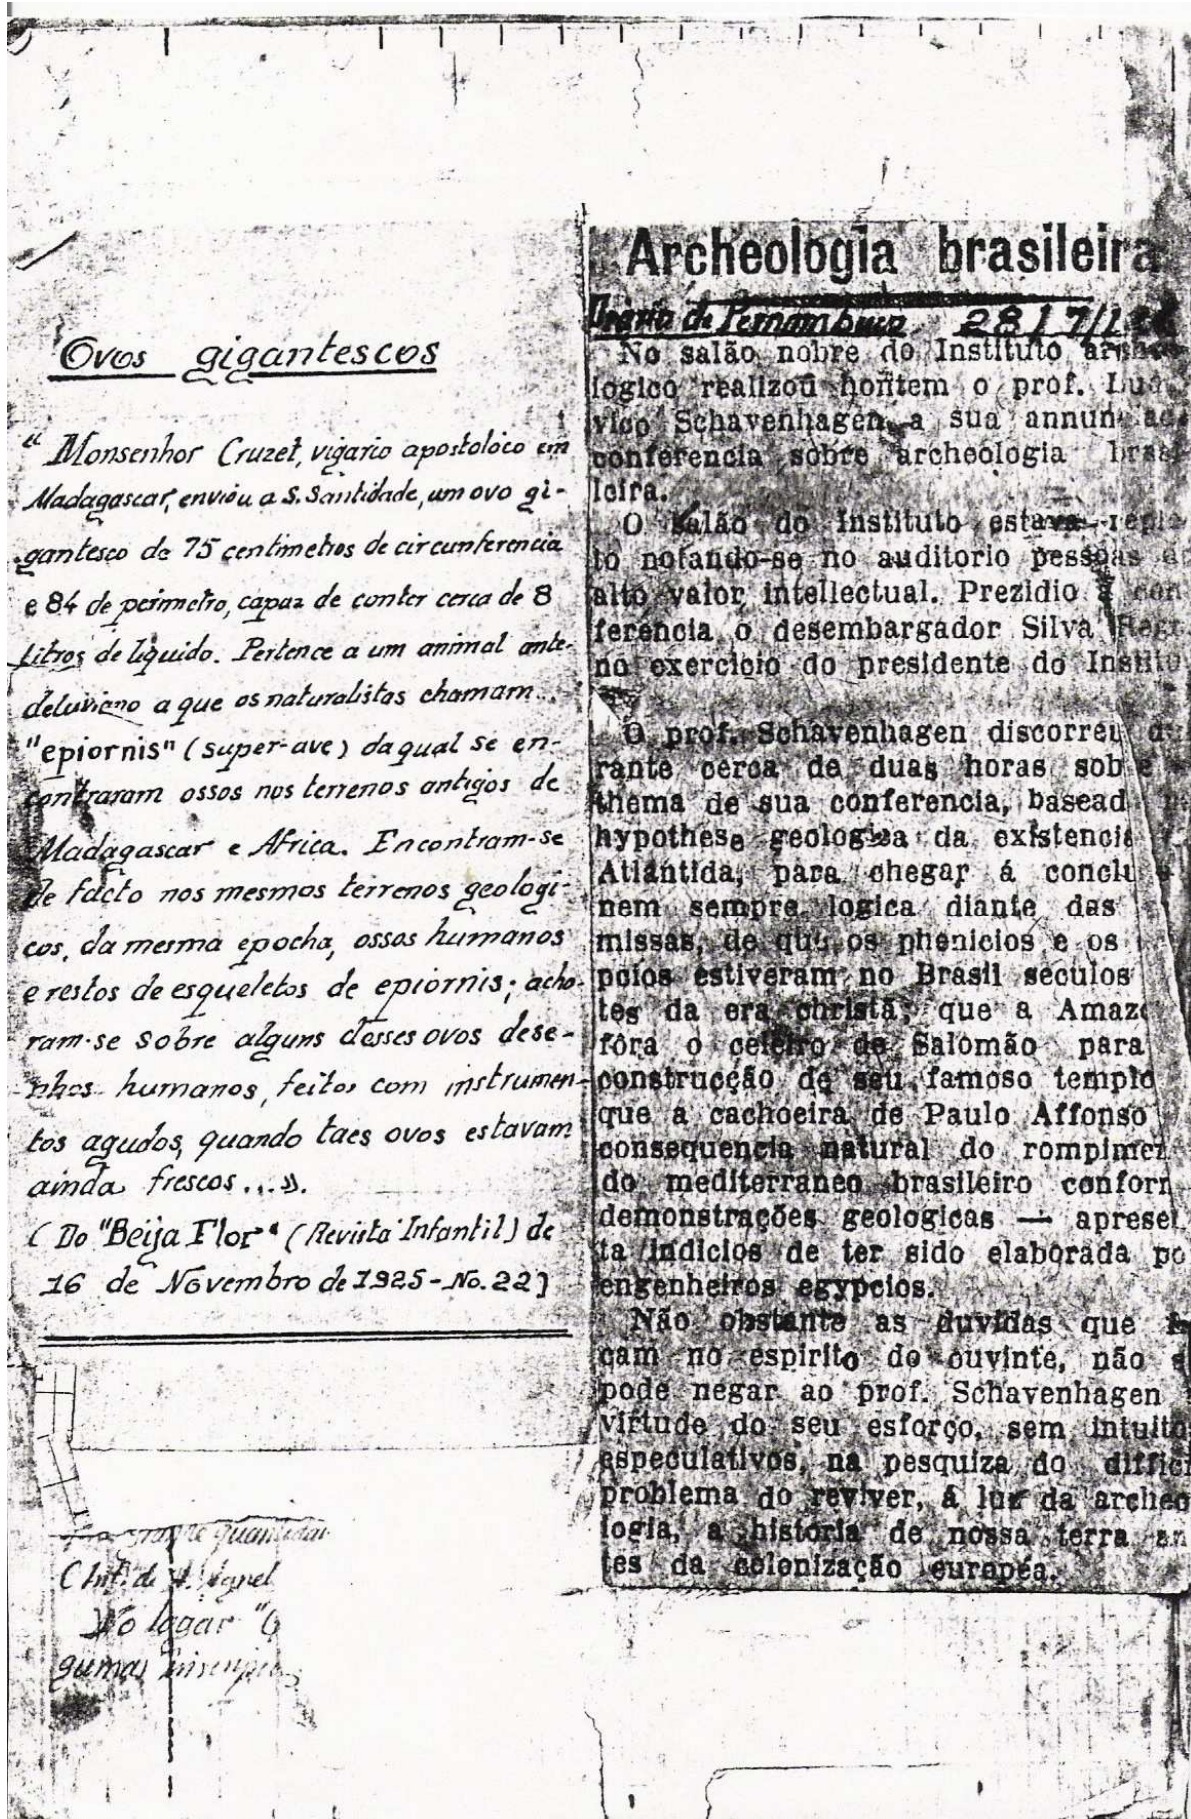 Ovos gigantescos
" Monsenhor Cruzet, vigario apostoloco em
Madagascar, enviou a S. Santidade, um ovo gi-
gantesco de 75 centimetros de circunferencia
e 84 de perimetro, capaz de conter cerca de 8
Litros de liquido. Pertence a um animal ante-
deluviano a que os naturalistas chamam...
"epiornis" (super-ave) da qual se en-
contraram ossos nos terrenos antigos de
Madagascar e Africa. Encontram-se
de facto nos mesmos terrenos geologi-
cos, da mesma epocha, ossos humanos
e restos de esqueletos de epiornis; acha-
ram-se sobre alguns desses ovos dese-
nhos humanos, feitos com instrumen-
tos agudos, quando taes ovos estavam
ainda frescos...».
( Do "Beija Flor" (Revista Infantil) de
16 de Novembro de 1925 - No. 22)
quantidade
( Inf. de
No logar "
gumas
Archeologia brasileira
Diario de Pernambuco 28/7/
No salão nobre do Instituto archeo
logico realizou hontem o prof. Lud
vico Schavenhagen a sua annun
conferencia sobre archeologia brasi
leira.
O salão do Instituto estava reple
to notando-se no auditorio pessoas d
alto valor intellectual. Prezidio a con
ferencia o desembargador Silva Reg
no exercicio do presidente do Institu
O prof. Schavenhagen discorreu du
rante cerca de duas horas sobre
thema de sua conferencia, basead
hypothese geologica da existencia
Atlantida, para chegar á conclu
nem sempre logica diante das
missas, de que os phenicios e os
pcios estiveram no Brasil seculos
tes da era christã; que a Amaz
fôra o celeiro de Salomão para
construcção de seu famoso templo
que a cachoeira de Paulo Affonso
consequencia natural do rompimen
do mediterraneo brasileiro conform
demonstrações geologicas — apresen
ta indicios de ter sido elaborada po
engenheiros egypcios.
Não obstante as duvidas que fi
cam no espirito do ouvinte, não s
pode negar ao prof. Schavenhagen
virtude do seu esforço, sem intuito
especulativos, na pesquiza do diffici
problema do reviver, á luz da archeo
logia, a historia de nossa terra an
tes da colonização européa.